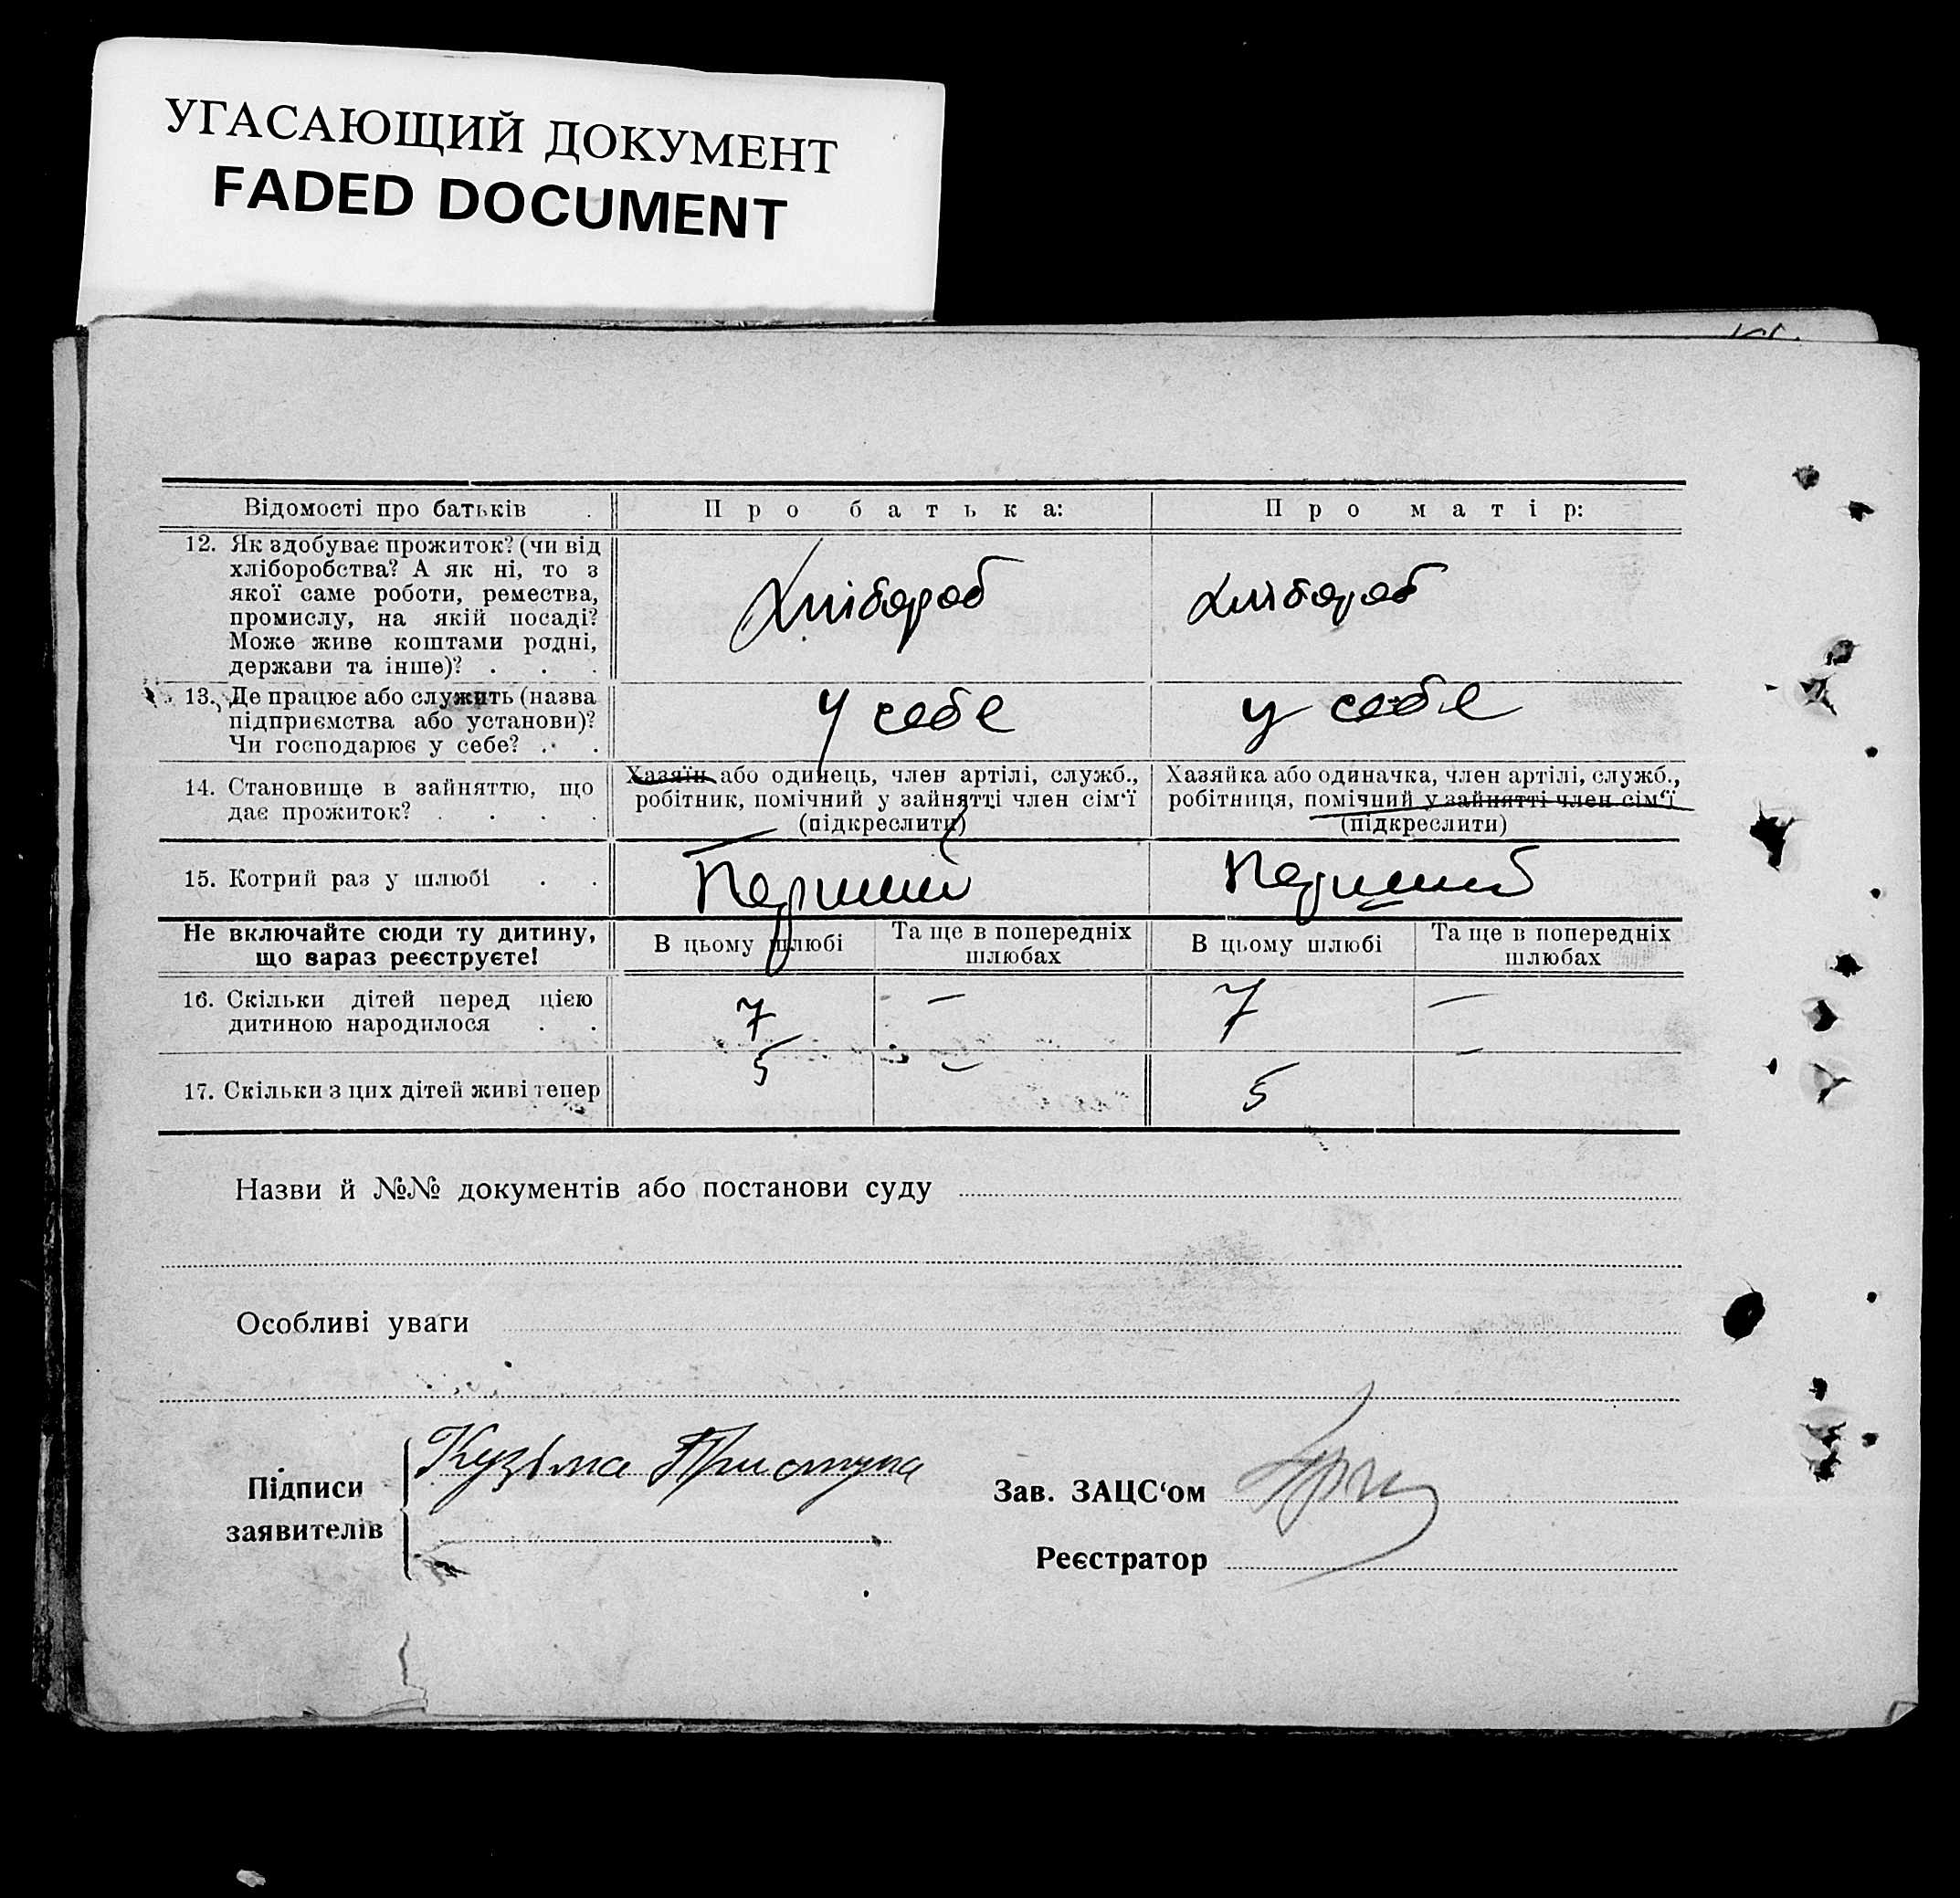 УГАСАЮЩИЙ ДОКУМЕНТ
FADED DOCUMENT
Відомості про батьків
Про батька:
Про матір:
12. Як здобуває прожиток? (чи від
хліборобства? А як ні, то з
якої саме роботи, ремества,
промислу, на якій посаді?
Може живе коштами родні,
держави та інше)? . . .
Хлібороб
Хлібороб
13. Де працює або служить (назва
підприємства або установи)?
Чи господарює у себе? . .
У себе
у себе
14. Становище в зайняттю, що
дає прожиток? . . . .
Хазяїн або одинець, член артілі, служб.,
робітник, помічний у зайнятті член сім'ї
(підкреслити)
Хазяйка або одиначка, член артілі, служб.,
робітниця, помічний у зайнятті член сім'ї
(підкреслити)
15. Котрий раз у шлюбі . .
Перший
Перший
Не включайте сюди ту дитину,
що зараз реєструєте!
В цьому шлюбі
Та ще в попередніх
шлюбах
В цьому шлюбі
Та ще в попередніх
шлюбах
16. Скільки дітей перед цією
дитиною народилося . .
7
—
7
—
17. Скільки з цих дітей живі тепер
5
—
5
—
Назви й №№ документів або постанови суду
Особливі уваги
Підписи
заявителів
Кузьма Приступа
Зав. ЗАЦС'ом
Реєстратор